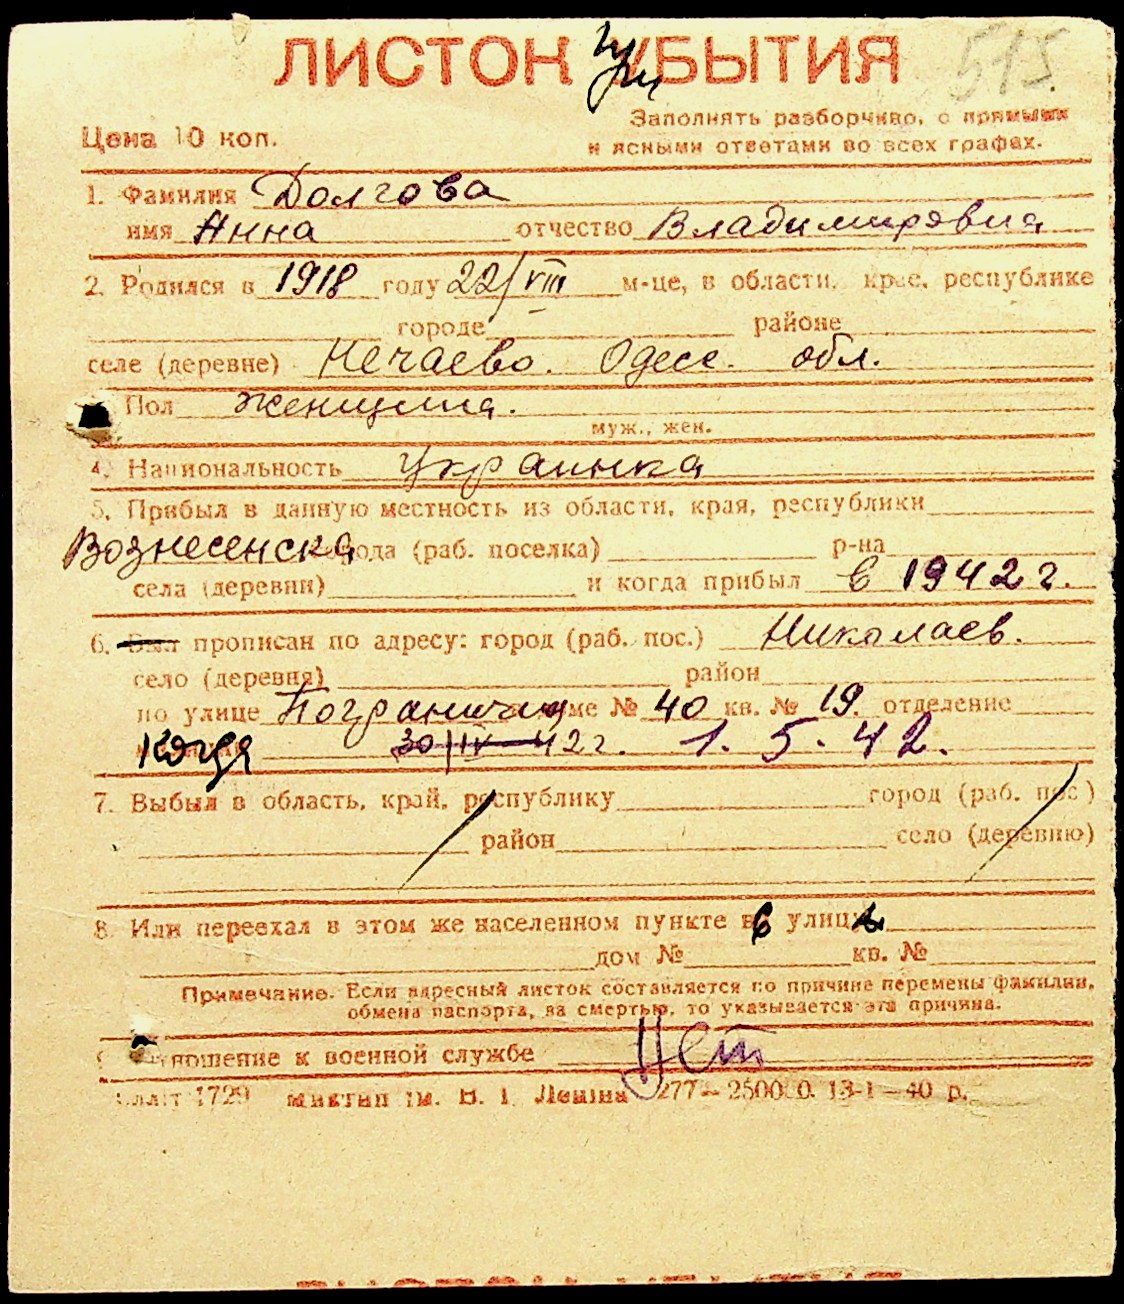 ЛИСТОК при УБЫТИЯ 515
Заполнять разборчиво, с прямыми
Цена 10 коп. и ясными ответами во всех графах.
1. Фамилия Долгова
имя Анна отчество Владимировна
2. Родился в 1918 году 22/VIII м-це, в области, крае, республике
городе районе
селе (деревне) Нечаево. Одесс. обл.
Пол женщина.
муж., жен.
4. Национальность украинка
5. Прибыл в данную местность из области, края, республики
Вознесенска города (раб. поселка) р-на
села (деревни) и когда прибыл в 1942 г.
6. Был прописан по адресу: город (раб. пос.) Николаев.
село (деревня) район
по улице Погранична доме № 40 кв. № 19. отделение
когда 30/IV-42 г. 1.5.42.
7. Выбыл в область, край, республику город (раб. пос.)
район село (деревню)
8. Или переехал в этом же населенном пункте в улицы
дом № кв. №
Примечание. Если адресный листок составляется по причине перемены фамилии,
обмена паспорта, за смертью, то указывается эта причина.
отношение к военной службе Нет
1729 ім. В. І. Леніна 277—25000. 13-1—40 р.